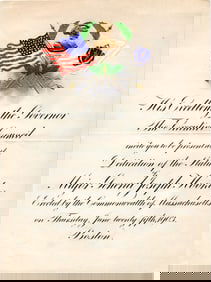 His Excellency the Governor
invite you to be present at
Dedication of the Statue
Major General Joseph Hooker
Erected by the Commonwealth of Massachusetts
on Thursday, June twenty fifth, 1903.
Boston.